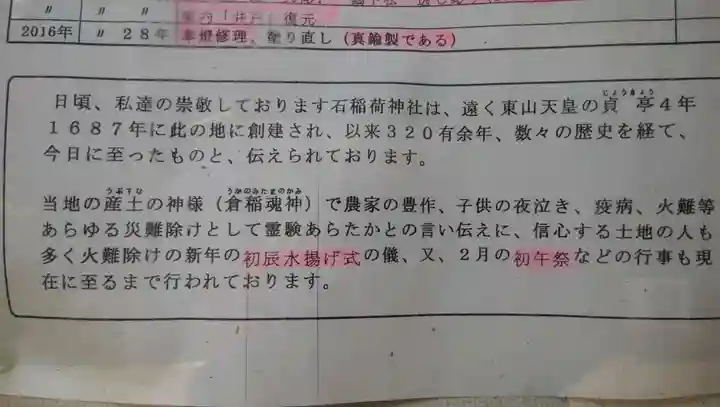 〃 〃 〃 案内「井戸」復元
2016年 〃28年 車燈修理、塗り直し(真鍮製である)
じょうきょう
日頃、私達の崇敬しております石稲荷神社は、遠く東山天皇の貞亭4年
1687年に此の地に創建され、以来320有余年、数々の歴史を経て、
今日に至ったものと、伝えられております。
うぶすな うかのみたまのかみ
当地の産土の神様(倉稲魂神)で農家の豊作、子供の夜泣き、疫病、火難等
あらゆる災難除けとして霊験あらたかとの言い伝えに、信心する土地の人も
多く火難除けの新年の初辰水揚げ式の儀、又、2月の初午祭などの行事も現
在に至るまで行われております。